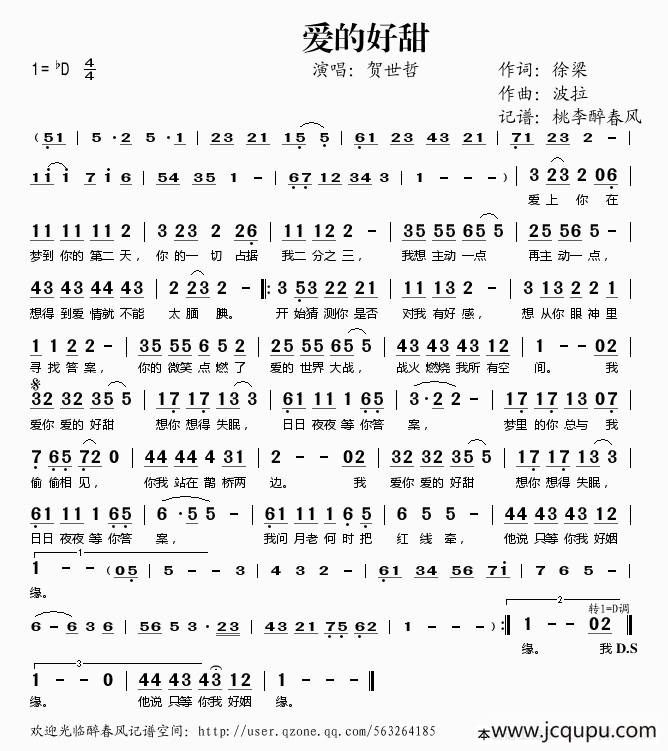 爱的好甜
1=♭D 4/4 演唱：贺世哲 作词：徐梁
作曲：波拉
记谱：桃李醉春风
(51 | 5 · 2 5 · 1 | 23 21 15 5 | 61 23 43 21 | 71 23 2 - |
11 i 7 i 6 | 54 35 1 - | 67 12 34 3 | 1 - - - ) | 3 23 2 06 |
爱上 你 在
11 11 11 2 | 3 23 2 26 | 11 11 12 2 - | 35 55 65 5 | 25 56 5 - |
梦到 你的 第二 天， 你 的一 切 占据 我二 分之 三， 我想 主动 一点 再主 动一 点，
43 43 43 43 | 2 23 2 - ‖: 3 53 22 21 | 11 13 2 - | 33 43 43 21 |
想得 到爱 情就 不能 太 腼 腆。 开 始猜 测你 是否 对我 有好 感， 想 从你 眼神 里
1 1 2 2 - | 35 55 65 5 | 25 55 65 5 | 43 43 43 43 | 1 - - 02 |
寻找 答案， 你的 微笑 点燃 了 爱的 世界 大战， 战火 燃烧 我所 有空 间。 我
32 32 32 35 5 | 17 17 13 3 | 61 11 11 65 | 3 · 2 2 - | 17 17 13 07 |
爱你 爱的 好甜 想你 想得 失眠， 日日 夜夜 等你 答 案， 梦里 的你 总与 我
7 65 72 0 | 44 44 43 31 | 2 - - 02 | 32 32 32 35 5 | 17 17 13 3 |
偷 偷相 见， 你我 站在 鹊桥 两 边。 我 爱你 爱的 好甜 想你 想得 失眠，
61 11 11 65 | 6 · 5 5 - | 61 11 61 65 | 6 5 5 - | 44 43 43 43 |
日日 夜夜 等你 答 案， 我问 月老 何时 把 红 线 牵， 他说 只等 你我 好姻
1
1 - - (05 | 5 - - 3 | 4 3 2 - | 62 61 23 56 7i | 7 6 5 - |
缘。
2
转1=D调
6 - 6 3 6 | 56 5 3 · 23 | 43 21 75 62 | 1 - - - ) :‖ 1 - - 02 ‖
缘。 我 D.S
3
1 - - - | 44 43 43 43 | 1 - - - ‖
缘。 他说 只等 你我 好姻 缘。
欢迎光临醉春风记谱空间：http://user.qzone.qq.com/563264185
本www.jcqupu.com